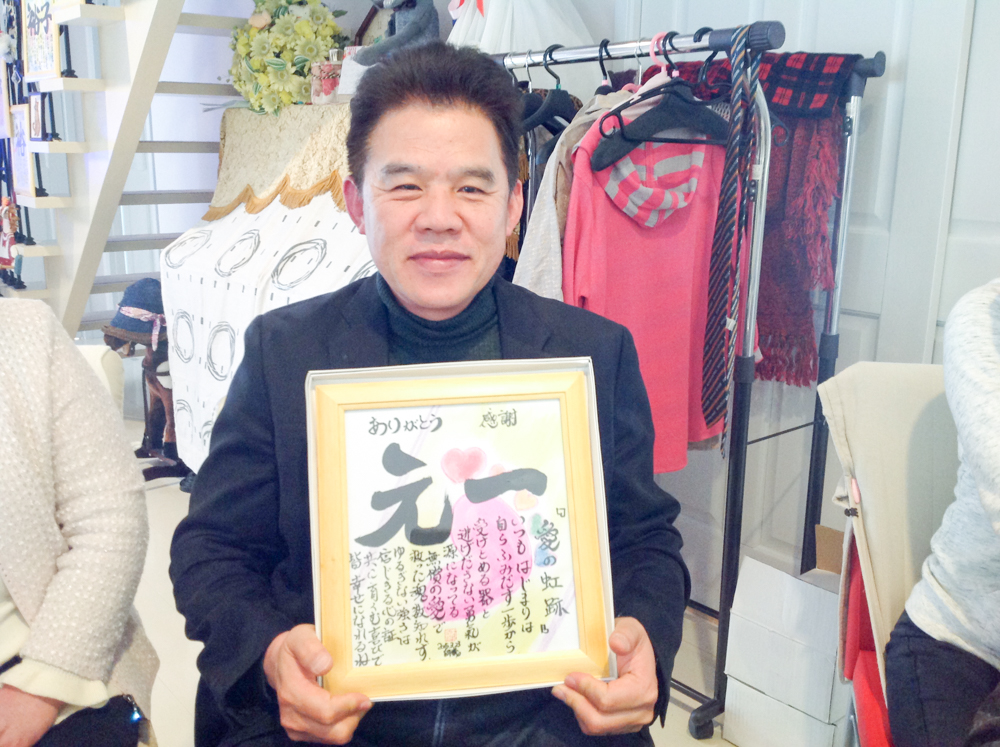 ありがとう
感謝
元一
『愛の虹跡』
いつもはじまりは
自らふみだす一歩から
受けとめる器と
逃げださない
源になってる
無償の愛で
救った魂数知れず
ゆるぎない強さは
信じきる心の証
共に育くむ喜びで
皆幸せになれるね